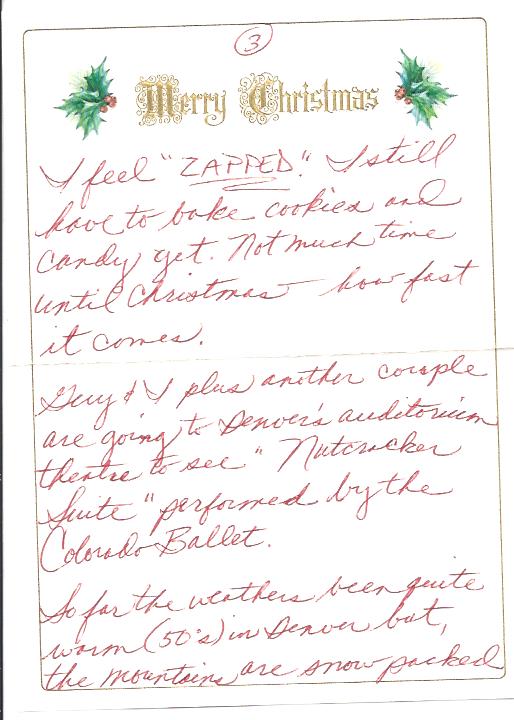 3
Merry Christmas
I feel "ZAPPED." I still
have to bake cookies and
candy yet. Not much time
until Christmas - how fast
it comes.
Guy & I plus another couple
are going to Denver's auditorium
theatre to see "Nutcracker
Suite" performed by the
Colorado Ballet.
So far the weathers been quite
warm (50's) in Denver but,
the mountains are snow packed